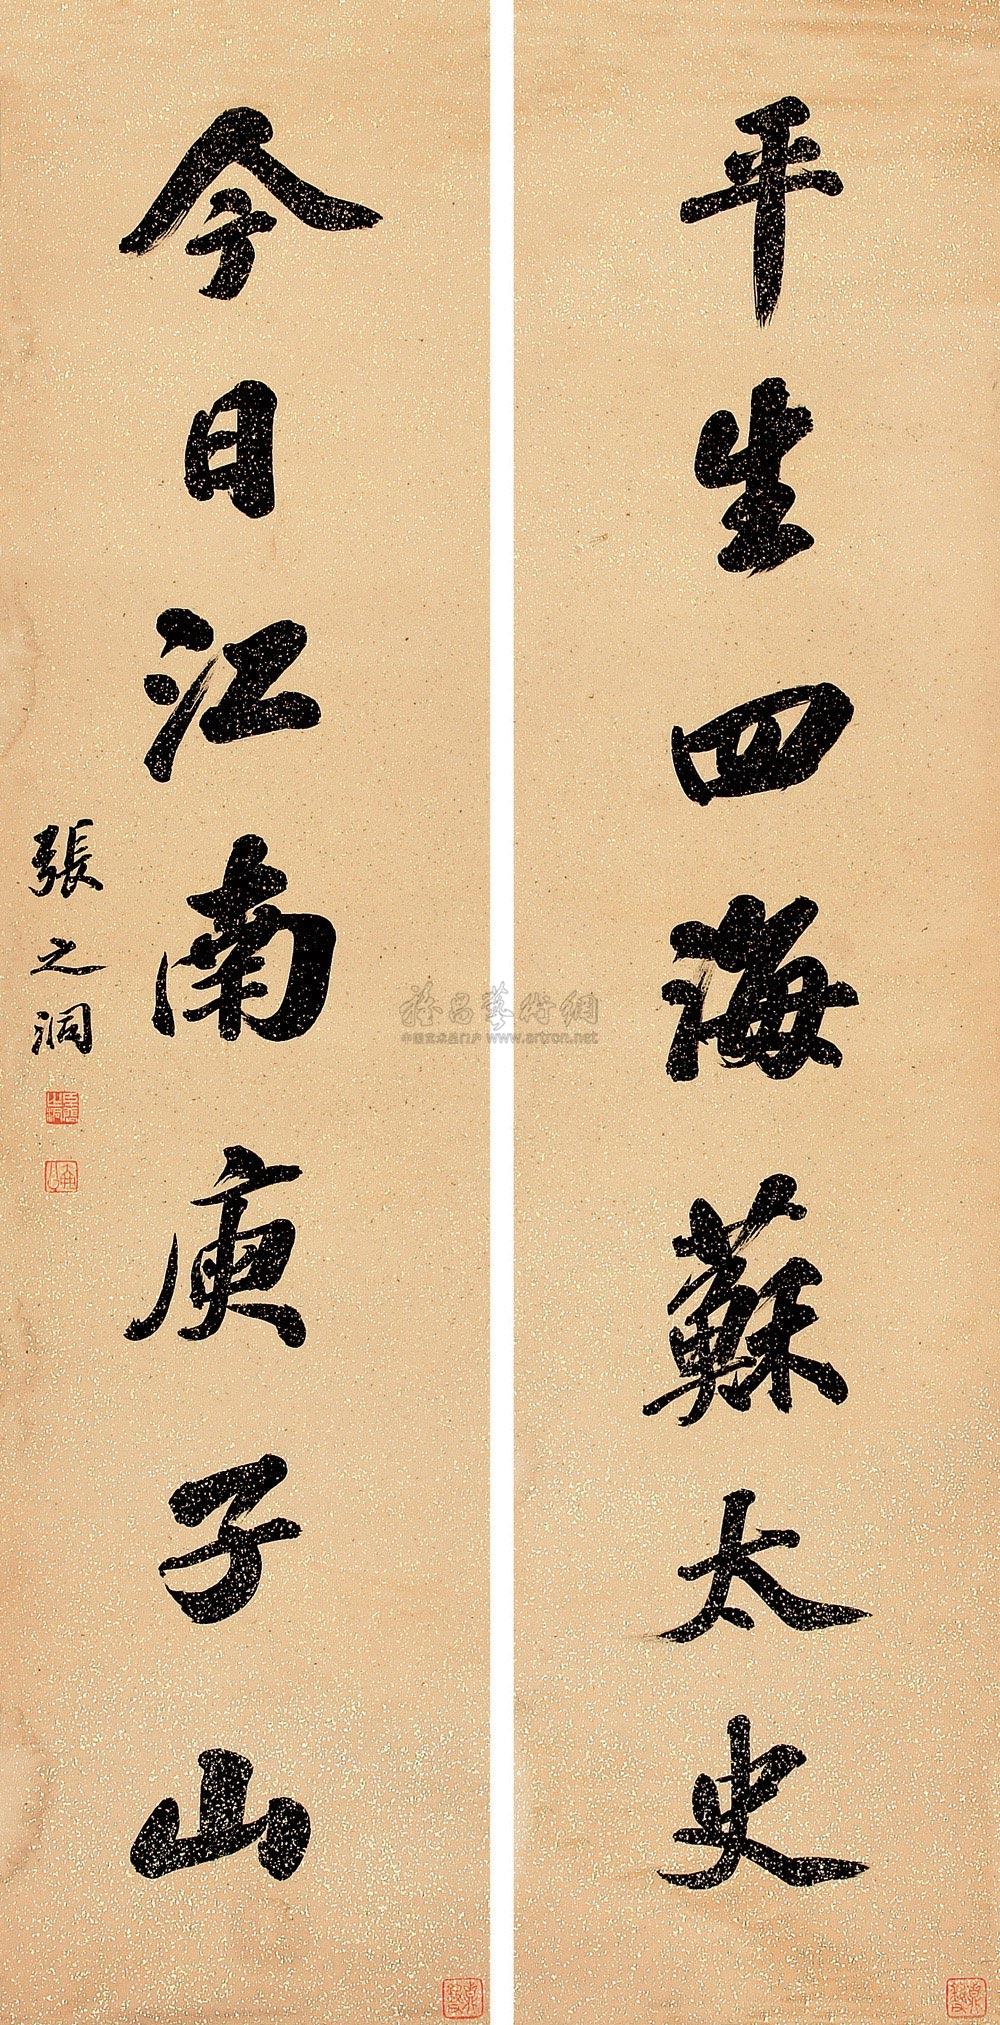 平生四海蘇太史
今日江南庾子山
張之洞
雅昌藝術網
中国艺术品门户 www.artron.net